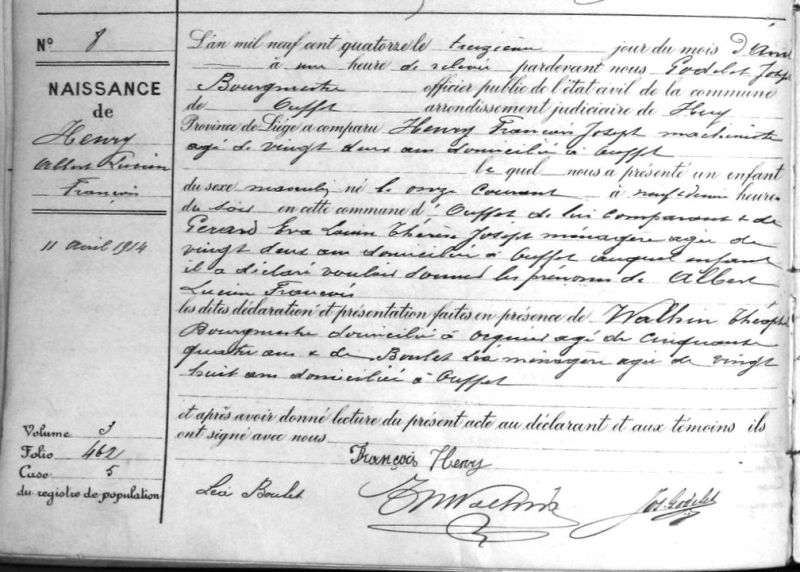 N° 8
NAISSANCE
de
Henry
Albert Lucien
François
11 avril 1914
Volume 3
Folio 462
Case 5
du registre de population
L'an mil neuf cent quatorze le treizième jour du mois D'Avri
à une heure de relevée pardevant nous Godelet Josep
Bourgmestre officier public de l'état civil de la commune
de Ouffet arrondissement judiciaire de Huy
Province de Liége a comparu Henry François Joseph machiniste
agé de vingt deux ans domicilié à Ouffet
lequel nous a présenté un enfant
du sexe masculin né le onze courant à neuf & demie heures
du soir en cette commune d' Ouffet de lui comparant & de
Gerard Eva Louise Thérèse Joseph ménagère agée de
vingt deux ans domiciliée à Ouffet auquel enfant
il a déclaré vouloir donner les prénoms de Albert
Lucien François
les dites déclaration et présentation faites en présence de Walhin Théoph
Bourgmestre domicilié à Ocquier agé de cinquante
quatre ans & de Boulet Léa ménagère agée de vingt
huit ans domiciliée à Ouffet
et après avoir donné lecture du présent acte au déclarant et aux témoins ils
ont signé avec nous
François Henry
Léa Boulet
Walhin
Jos. Godelet